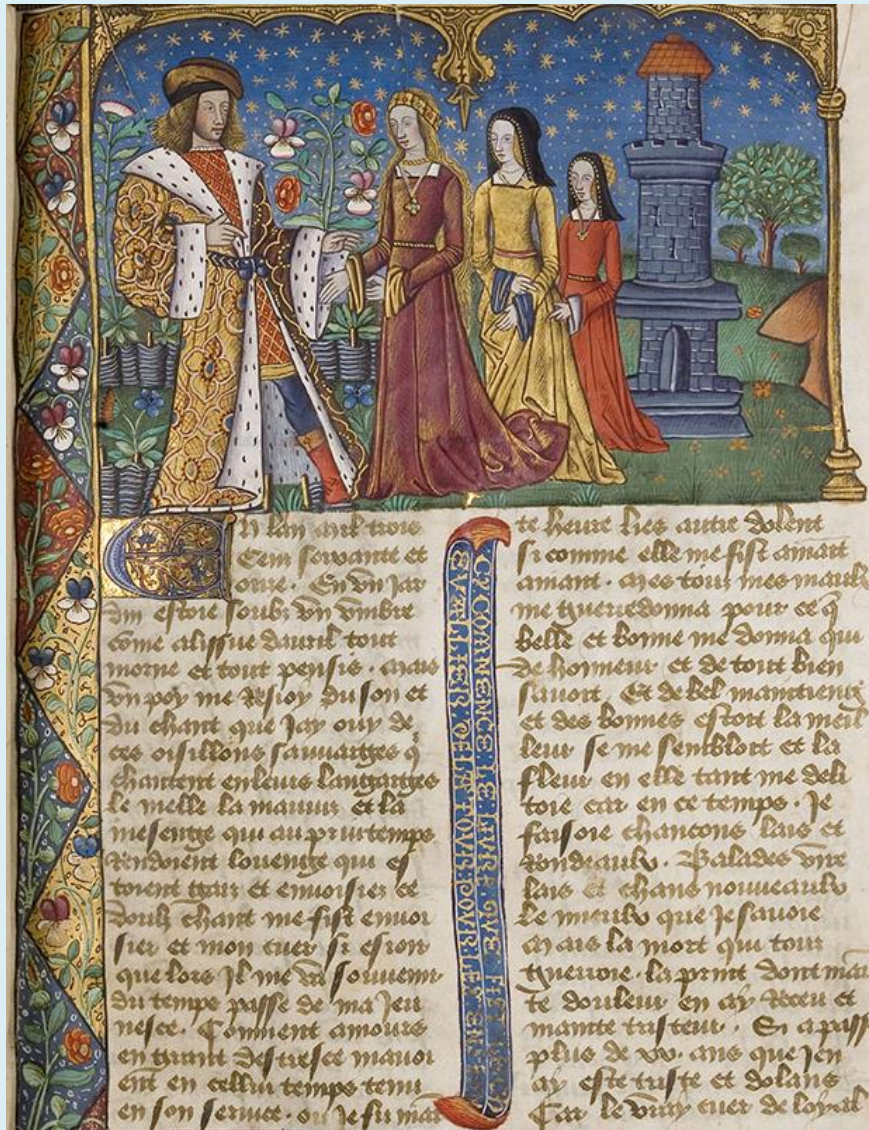 En lan mil trois
Cens soixante et
onze. En vn jar
din estoie soubz vn vmbre
come alissue dauril tout
morne et tout pensis. mais
vn poy me resioy du son et
du chant que jay ouy de
ces oisillons sauuaiges q̄
chantent en leurs langaiges
le melle la mauuis et la
mesenge qui au printemps
rendoient louenge qui es
toient gaiz et enuoisiez ce
doulz chant me fist enuoi
sier et mon cuer si esioir
que lors Jl me va souuenir
du temps passe de ma jeu
nesce. Comment amours
en grant destresce mauoi
ent en cellui temps tenu
en son seruice. ou je fu mai
CY COMENCE LE LIVRE QVE FIST
EVALLIER DE LA TOVR POVR
te heure lies autre dolent
si comme elle me fist amait
amant. mes tous mes maulx
me guerredonna pour ce q̄
belle et bonne me donna qui
de honneur et de tout bien
sauoit. Et de bel maintieng
et des bonnes estoit la meil
leur se me sembloit et la
fleur en elle tant me deli
toie car en ce temps. Je
faisoie chancons lais et
rondeaulx. Balades vire
lais et chans nouueaulx
le mieulx que je sauoie
mais la mort qui tout
guerroie. la print dont mai
te douleur en ay receu et
mainte tristeur. Si a passe
plus de xx. ans que jen
ay este triste et dolans
Car le vray cuer de loyal